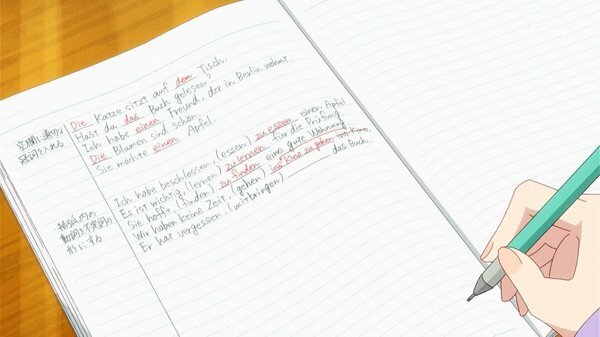 空欄に適切な
冠詞を入れる
Die Katze sitzt auf dem Tisch.
Hast du das Buch gelesen?
Ich habe einen Freund, der in Berlin wohnt.
Die Blumen sind schön.
Sie möchte einen Apfel.
動詞を不定詞の
形にする
Ich habe beschlossen, (essen) zu essen einen Apfel.
Es ist wichtig, (lernen) zu lernen für die Prüfung.
Sie hofft, (finden) zu finden eine gute Wohnung.
Wir haben keine Zeit, (gehen) ins Kino zu gehen
Er hat vergessen, (mitbringen) das Buch.